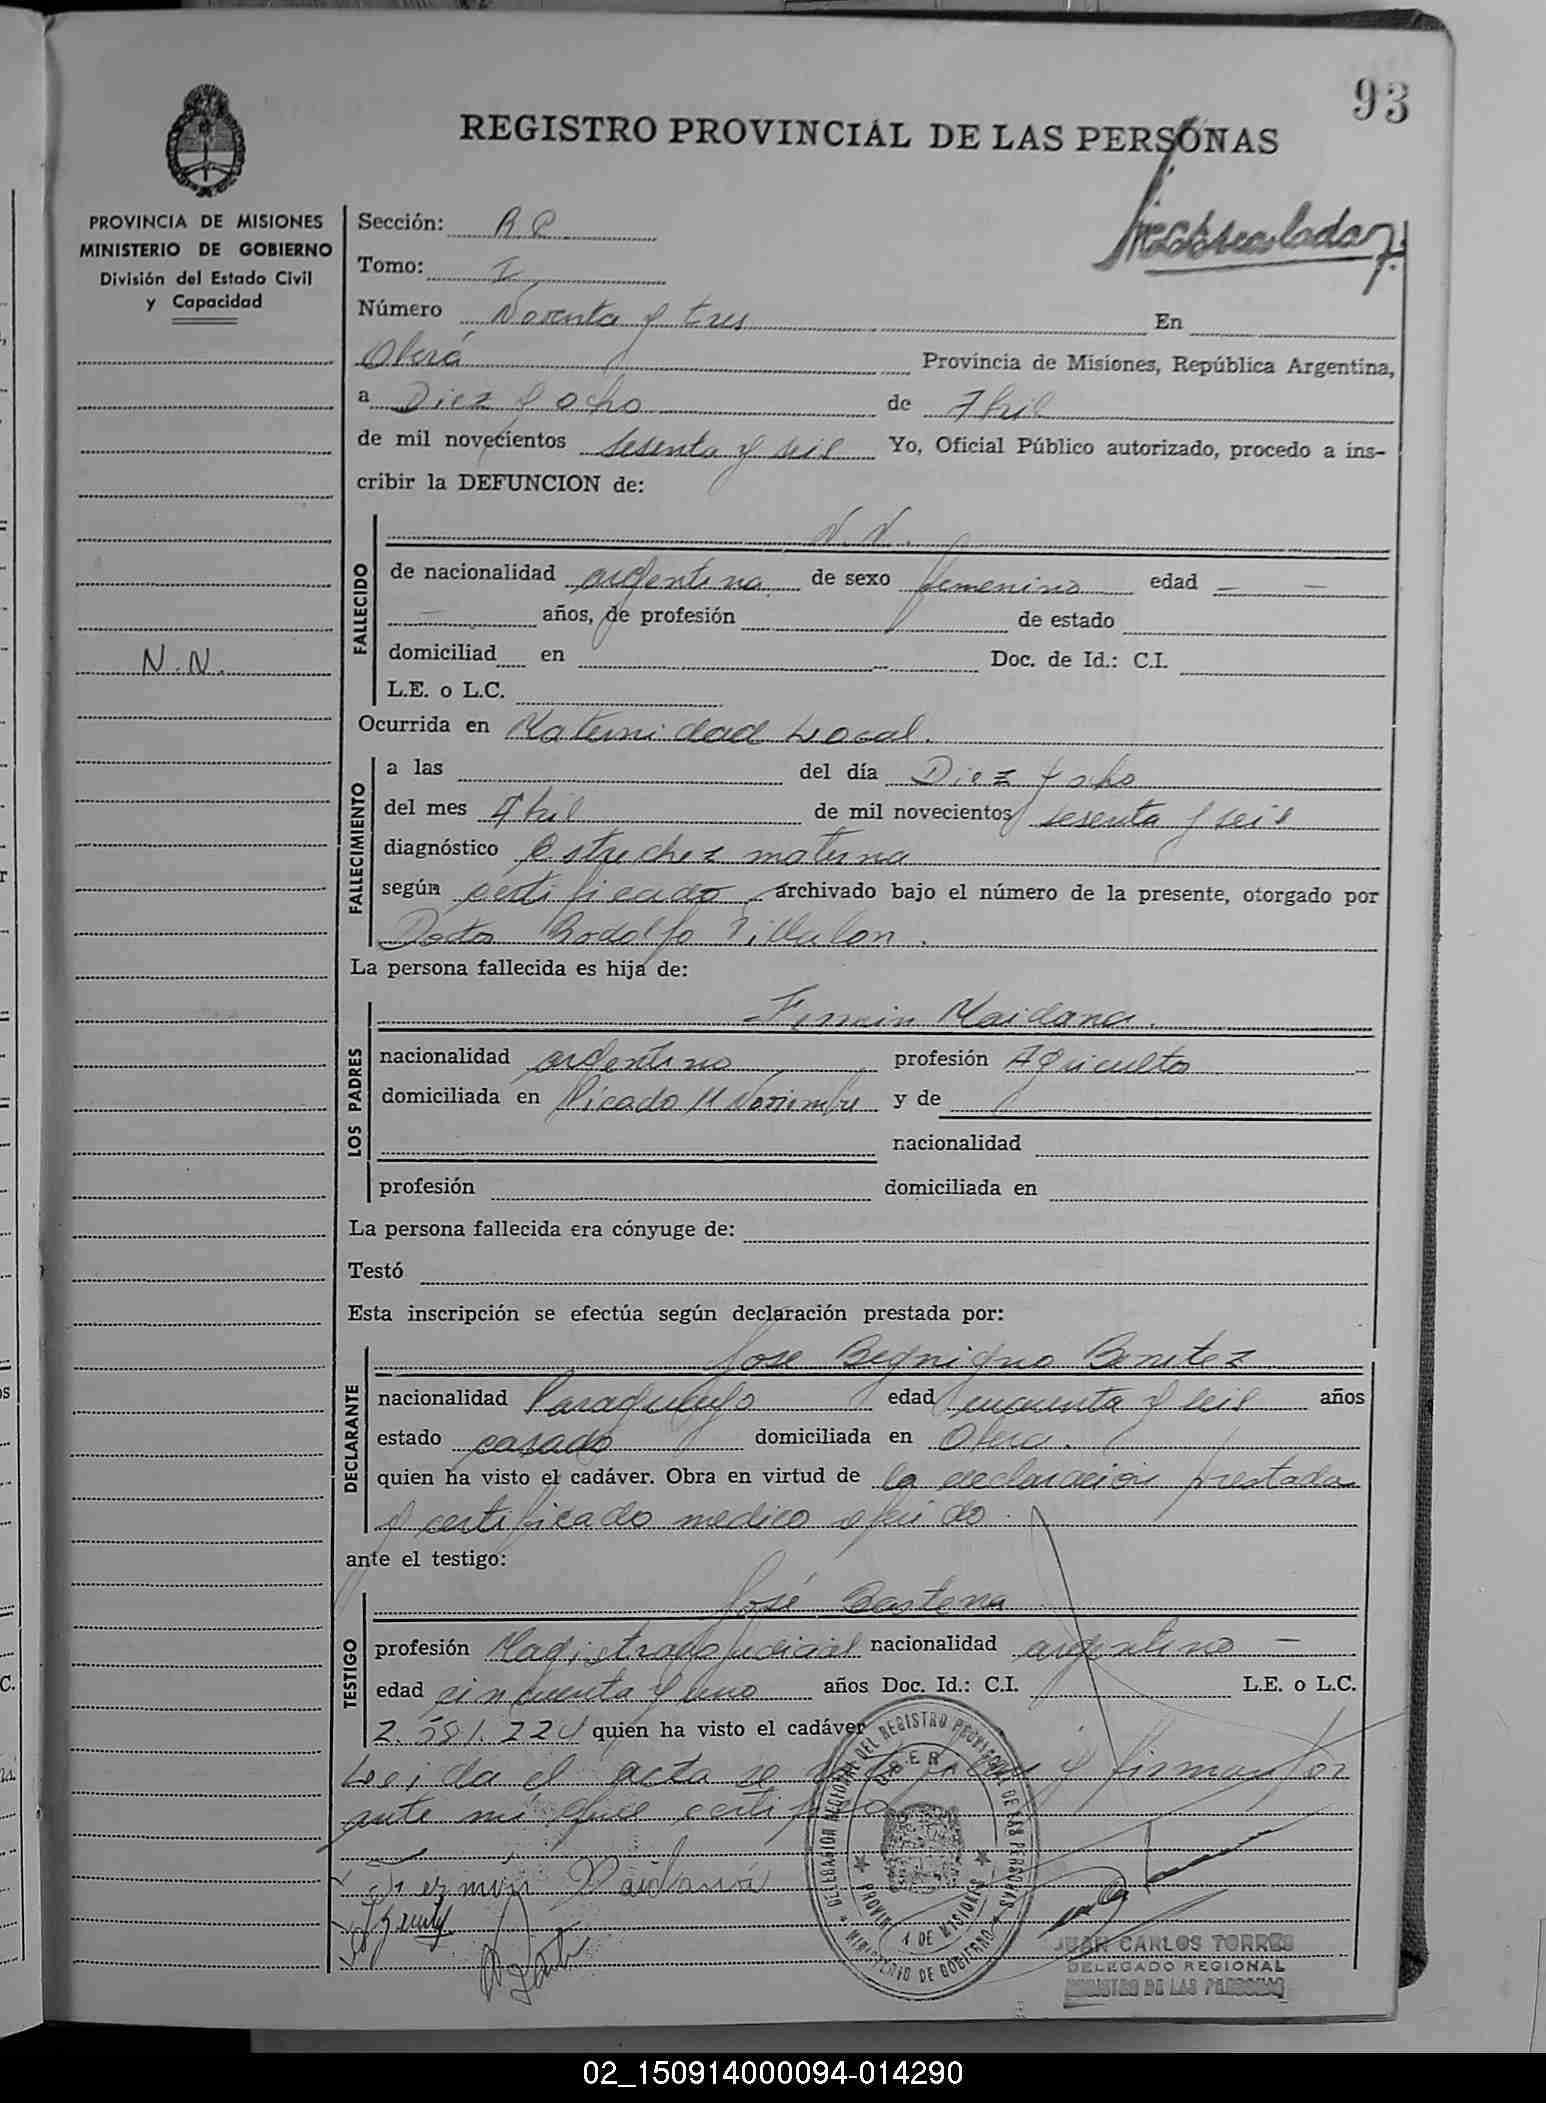 93
REGISTRO PROVINCIAL DE LAS PERSONAS
PROVINCIA DE MISIONES
MINISTERIO DE GOBIERNO
División del Estado Civil
y Capacidad
N.N.
Sección: R.P.
Tomo: I
Número Noventa y tres En
Oberá Provincia de Misiones, República Argentina,
a Diez y ocho de Abril
de mil novecientos sesenta y seis Yo, Oficial Público autorizado, procedo a ins-
cribir la DEFUNCION de:
FALLECIDO
N.N.
de nacionalidad argentina de sexo femenino edad — —
— años, de profesión de estado
domiciliad en Doc. de Id.: C.I.
L.E. o L.C.
Ocurrida en Maternidad Local.
FALLECIMIENTO
a las del día Diez y ocho
del mes Abril de mil novecientos sesenta y seis
diagnóstico Estrechez materna
según certificado archivado bajo el número de la presente, otorgado por
Doctor Rodolfo Villalon.
La persona fallecida es hija de:
LOS PADRES
Fermin Maidana.
nacionalidad argentino profesión Agricultor
domiciliada en Picada 11 Noviembre y de
nacionalidad
profesión domiciliada en
La persona fallecida era cónyuge de:
Testó
Esta inscripción se efectúa según declaración prestada por:
DECLARANTE
Jose Begnigno Benitez
nacionalidad Paraguayo edad cuarenta y seis años
estado casado domiciliada en Obera.
quien ha visto el cadáver. Obra en virtud de la declaracion prestada
y certificado medico referido.
ante el testigo:
TESTIGO
José Bastena
profesión Magistrado judicial nacionalidad argentino —
edad cincuenta y uno años Doc. Id.: C.I. L.E. o L.C.
2.581.224 quien ha visto el cadáver
Leida el acta se ratifican y firman por
ante mi que certifico
Fermin Maidana
DELEGACION REGIONAL DEL REGISTRO PROVINCIAL DE LAS PERSONAS
OBERA
PROVINCIA DE MISIONES
MINISTERIO DE GOBIERNO
JUAN CARLOS TORRES
DELEGADO REGIONAL
REGISTRO DE LAS PERSONAS
02_150914000094-014290